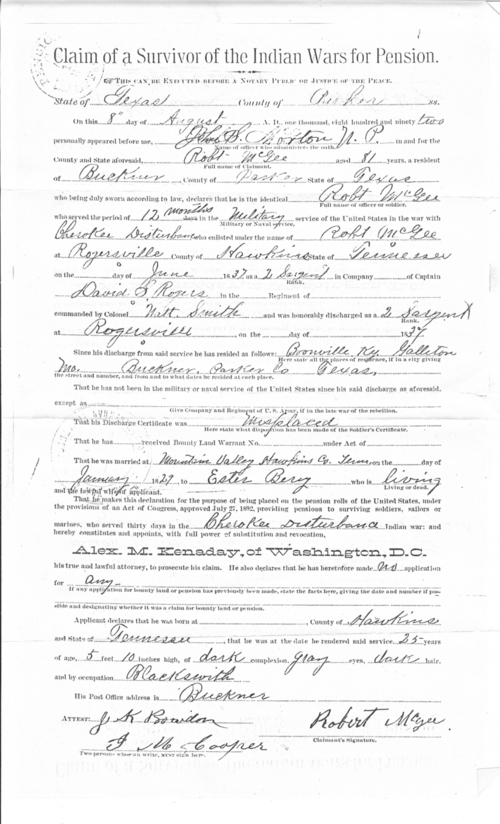 Claim of a Survivor of the Indian Wars for Pension.
THIS CAN BE EXECUTED BEFORE A NOTARY PUBLIC OR JUSTICE OF THE PEACE.
State of Texas County of Parker ss.
On this 8" day of August A. D. one thousand, eight hundred and ninety two
personally appeared before me, Morton N. P. in and for the
Name of officer who administers the oath.
County and State aforesaid, Robt McGee aged 81 years, a resident
Full name of Claimant.
of Buckner, County of Parker State of Texas
who being duly sworn according to law, declares that he is the identical Robt McGee
Full name of officer or soldier.
who served the period of 12 months days in the Military service of the United States in the war with
Military or Naval service.
Cherokee Disturbance who enlisted under the name of Robt McGee
at Rogersville County of Hawkins State of Tennessee
on the day of June 1837 as a 2 Sargent in Company of Captain
Rank.
David Rogers in the Regiment of
commanded by Colonel Smith and was honorably discharged as a 2 Sargent
Rank.
at Rogersville on the day of 1837
Since his discharge from said service he has resided as follows: Ky. Galliton
Here state all the places of residence, if in a city giving
Mo. Buckner, Parker Co Texas,
the street and number, and from and to what dates he resided at each place.
That he has not been in the military or naval service of the United States since his said discharge as aforesaid,
except as
Give Company and Regiment of U. S. Army, if in the late war of the rebellion.
That his Discharge Certificate was Missplaced
Here state what disposition has been made of the Soldier's Certificate.
That he has received Bounty Land Warrant No. under Act of
That he was married at Mountain Valley Hawkins Co. Tenn on the day of
January 1829, to Ester Bery who is living
Living or dead.
and the lawful wife of applicant.
That he makes this declaration for the purpose of being placed on the pension rolls of the United States, under
the provisions of an Act of Congress, approved July 27, 1892, providing pensions to surviving soldiers, sailors or
marines, who served thirty days in the Cherokee Disturbanc Indian war; and
hereby constitutes and appoints, with full power of substitution and revocation,
Alex. M. Kenaday, of Washington, D.C.
his true and lawful attorney, to prosecute his claim. He also declares that he has heretofore made no application
for any
If any application for bounty land or pension has previously been made, state the facts here, giving the date and number if pos-
sible and designating whether it was a claim for bounty land or pension.
Applicant declares that he was born at , County of Hawkins
and State of Tennessee, that he was at the date he rendered said service 25 years
of age, 5 feet 10 inches high, of dark complexion, gray eyes, dark hair,
and by occupation Blacksmith
His Post Office address is Buckner
ATTEST: J K Bowdon Robert McGee
Claimant's Signature.
J M Cooper
Two persons who can write, MUST sign here.